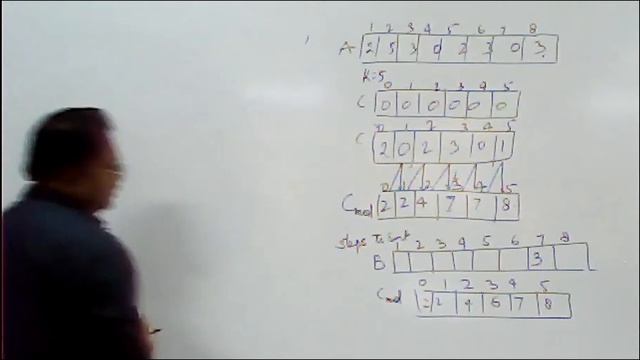 1 2 3 4 5 6 7 8
A 2 5 3 0 2 3 0 3
K=5
0 1 2 3 4 5
C 0 0 0 0 0 0
0 1 2 3 4 5
C 2 0 2 3 0 1
0 1 2 3 4 5
Cmod 2 2 4 7 7 8
Steps To Sort
1 2 3 4 5 6 7 8
B 3
0 1 2 3 4 5
Cmod 2 2 4 6 7 8